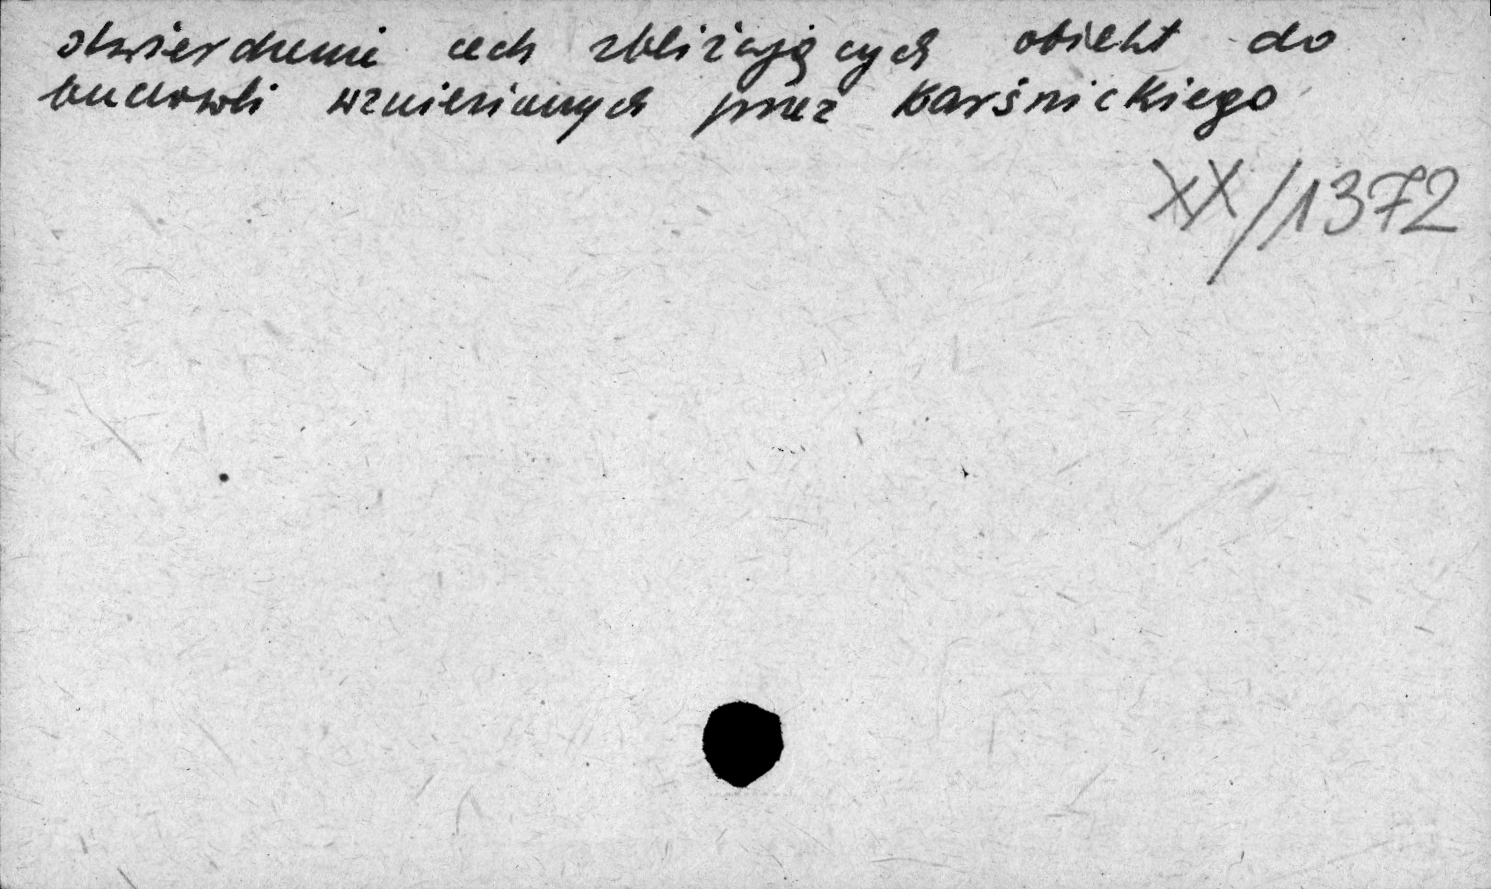 stwierdzenie cech zbliżających obiekt do
budowli wzniesionych przez Karśnickiego
XX/1372